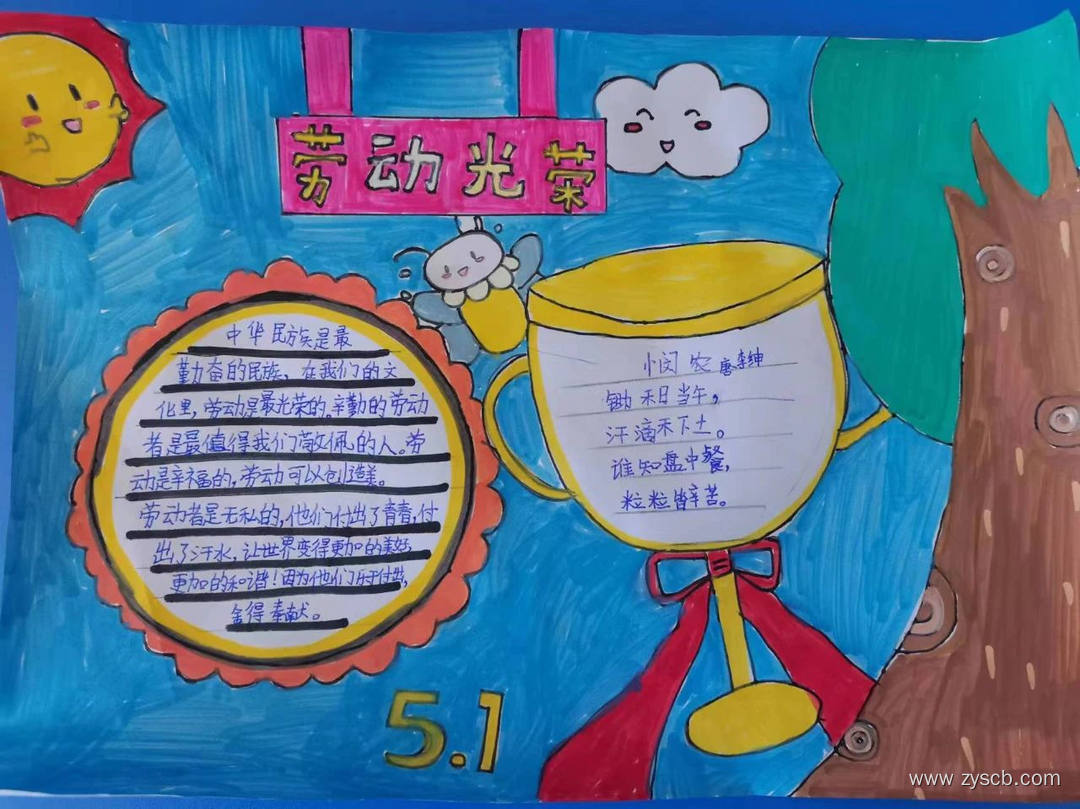 劳动光荣
中华民族是最
勤奋的民族，在我们的文
化里，劳动是最光荣的。辛勤的劳动
者是最值得我们敬佩的人。劳
动是幸福的，劳动可以创造美。
劳动者是无私的，他们付出了青春，付
出了汗水，让世界变得更加的美好，
更加的和谐！因为他们乐于付出，
舍得奉献。
悯农 唐李绅
锄禾日当午，
汗滴禾下土。
谁知盘中餐，
粒粒皆辛苦。
5.1
www.zyscb.com